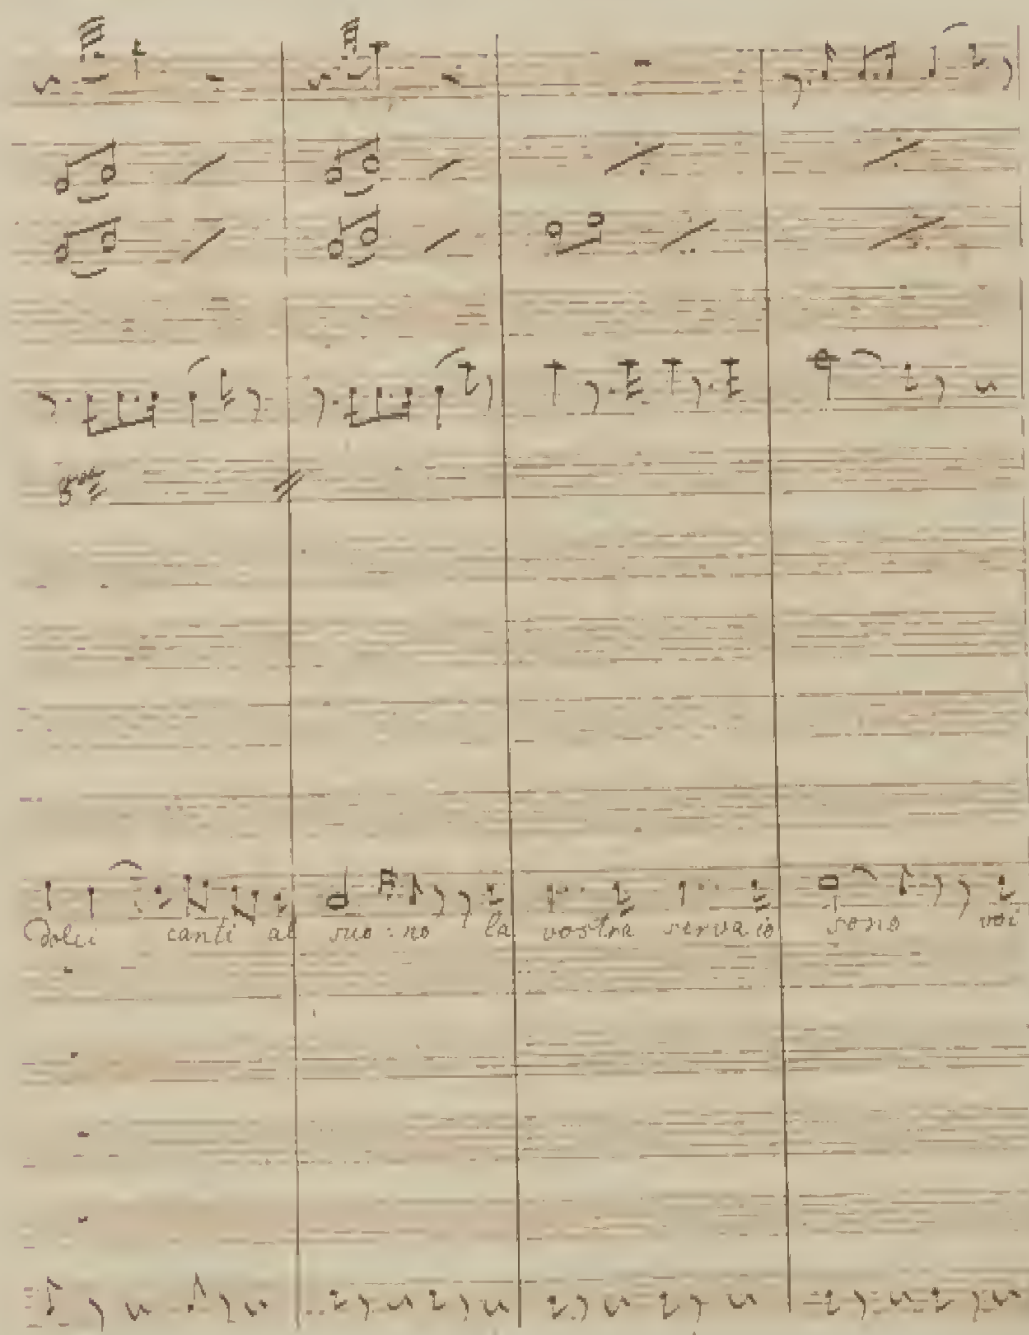 8va
Dolci canti al suo-no la vostra serva io sono voi